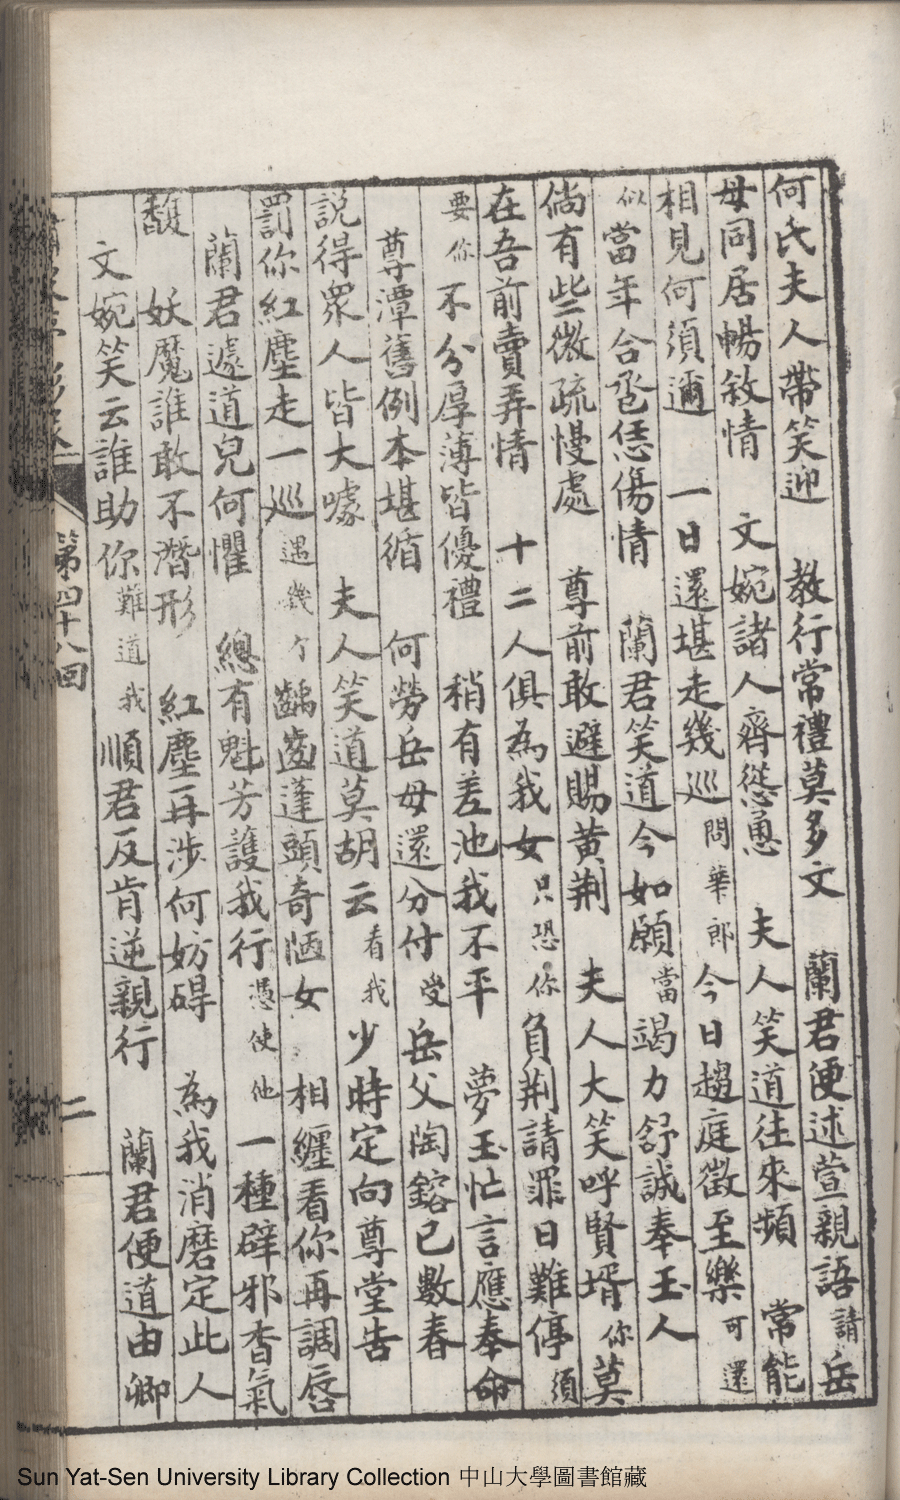 何氏夫人帶笑迎　教行常禮莫多文　蘭君便述萱親語請岳
母同居暢敘情　文婉諸人齊慫恿　夫人笑道往來頻　常能
相見何須邇　一日還堪走幾巡問華郎今日趨庭徵至樂可還
似當年合巹恁傷情　蘭君笑道今如願當竭力舒誠奉玉人
倘有些微疏慢處　尊前敢避賜黃荆　夫人大笑呼賢壻你莫
在吾前賣弄情　十二人俱為我女只恐你負荆請罪日難停須
要你不分厚薄皆優禮　稍有差池我不平　夢玉忙言應奉命
尊潭舊例本堪循　何勞岳母還分付受岳父陶鎔已數春
說得眾人皆大噱　夫人笑道莫胡云看我少時定向尊堂告
罰你紅塵走一巡遇幾个齲齒蓬頭奇陋女　相纏看你再調唇
蘭君遽道兒何懼　總有魁芳護我行憑使他一種辟邪香氣
馥　妖魔誰敢不潛形　紅塵再涉何妨碍　為我消磨定此人
文婉笑云誰助你難道我順君反肯逆親行　蘭君便道由卿
第四十八回
二
Sun Yat-Sen University Library Collection 中山大學圖書館藏